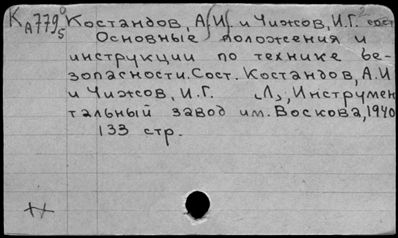 К А779 Костандов, А.И. и Чижов, И.Г. сост.
Основные положения и
инструкции по технике бе-
зопасности. Сост. Костандов, А.И
и Чижов, И.Г. Л., Инструмен
тальный завод им. Воскова, 1940
133 стр.